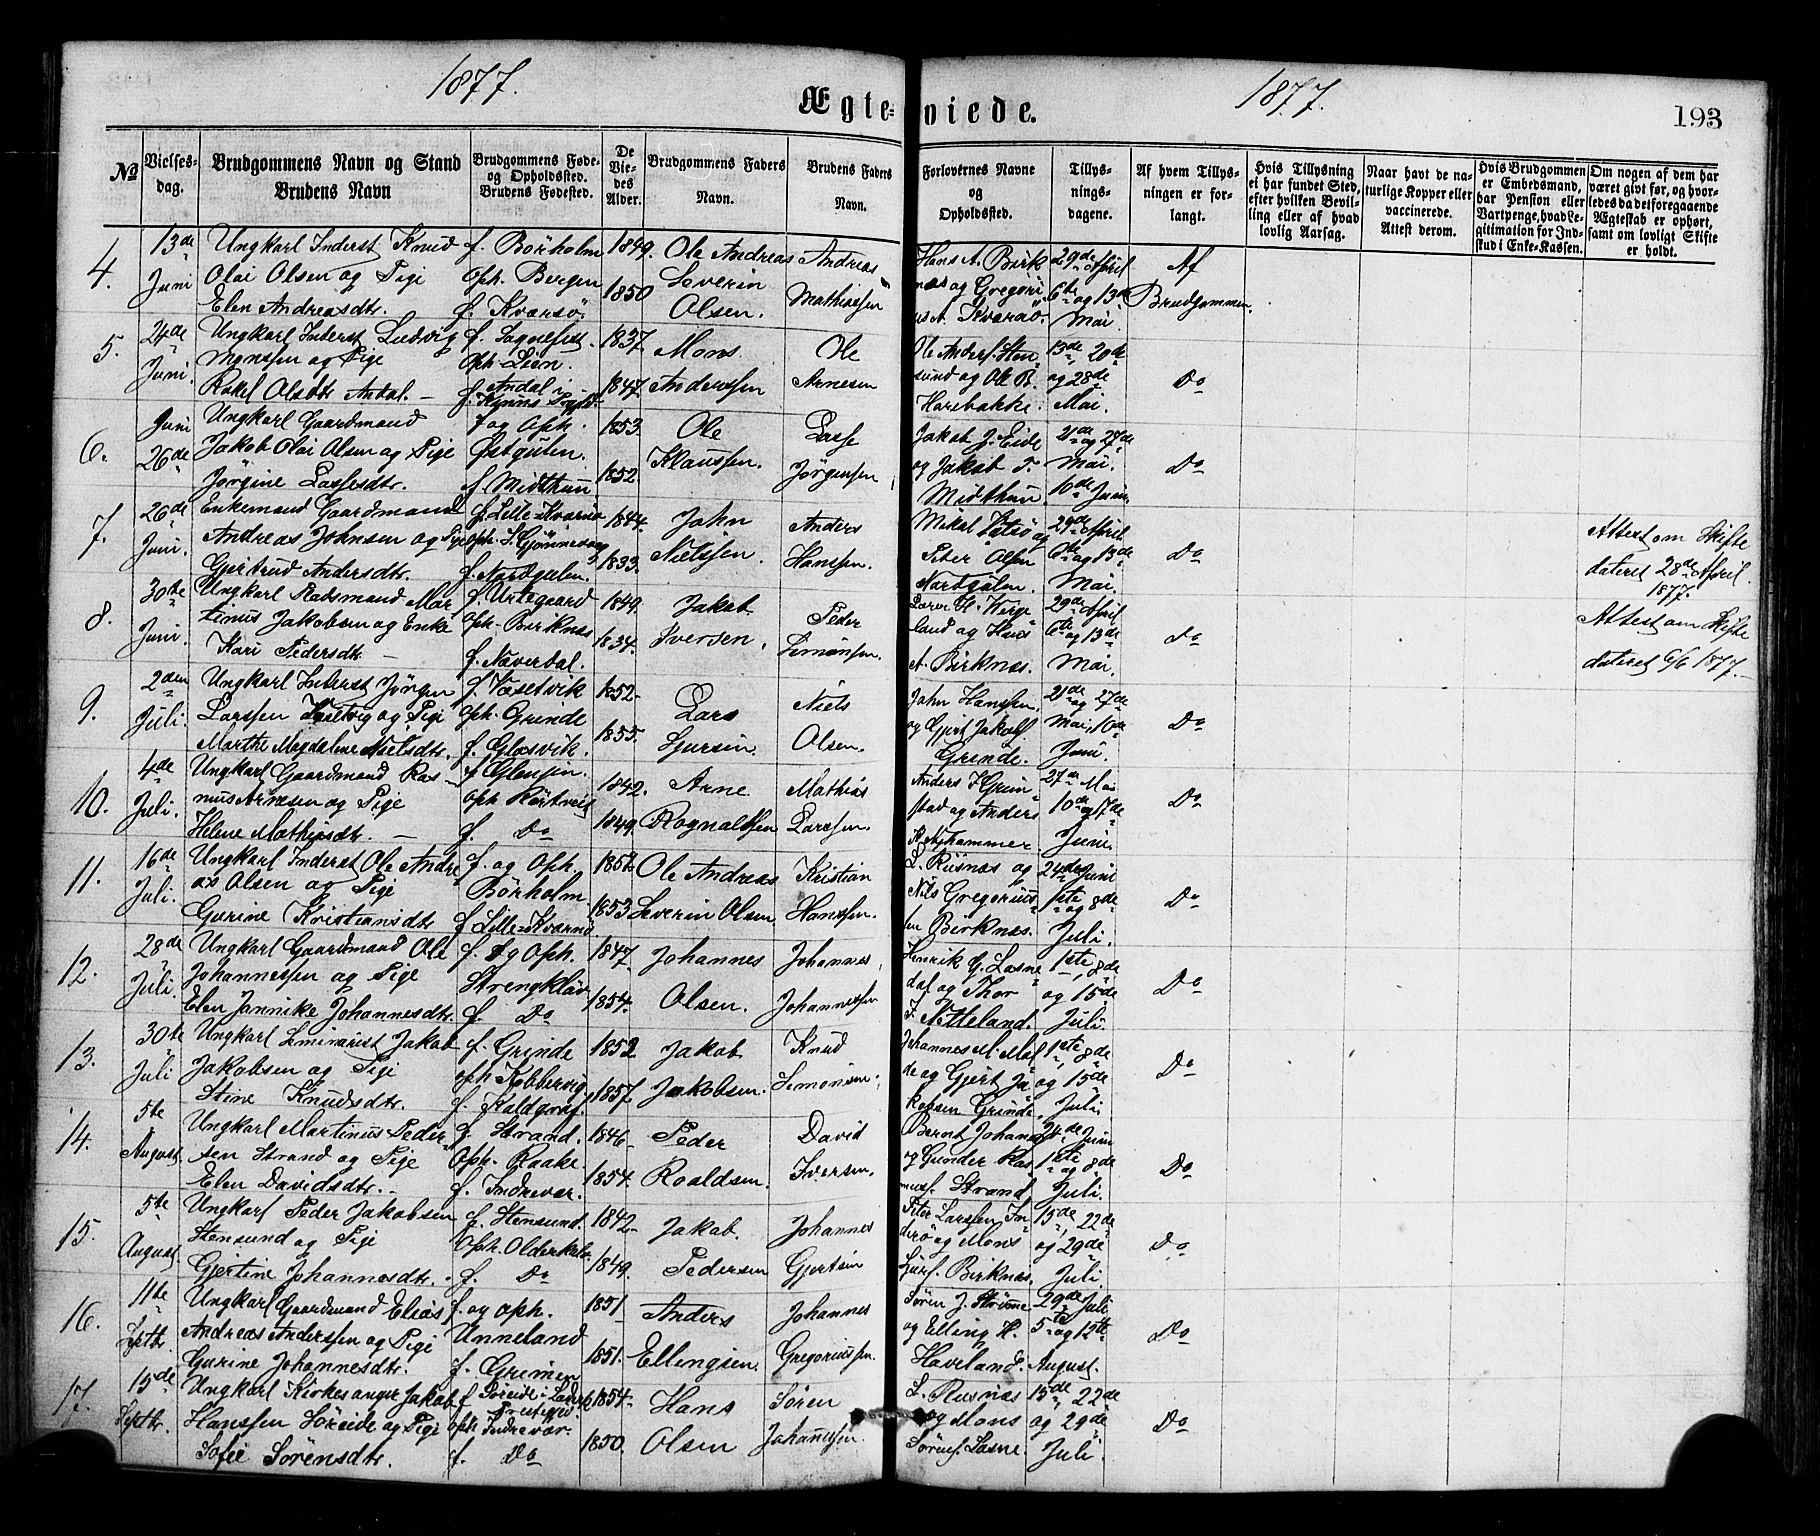 1877.
1877.
Ægte-viede.
193
No
Vielses-dag.
Brudgommens Navn og Stand
Brudens Navn
Brudgommens Føde-og Opholdssted.
Brudens Fødested.
De Viedes Alder.
Brudgommens Faders Navn.
Brudens Faders Navn.
Forlovernes Navne og Opholdssted.
Tillysningsdagene.
Af hvem Tillysningen er forlangt.
Hvis Tillysning ei har fundet Sted, efter hvilken Bevilling eller af hvad lovlig Aarsag.
Naar havt de naturlige Kopper eller vaccinerede. Attest derom.
Hvis Brudgommen er Embedsmand, har Pension eller Vartpenge, hvad Legitimation for Indskud i Enke-Kassen.
Om nogen af dem har været givt før, og hvorledes da det foregaaende Ægteskab er ophørt, samt om lovligt Skifte er holdt.
4. 13de Juni
Ungkarl Inderst Knud Olai Olsen og Pige Elen Andreasdtr.
f. Borholm oph. Bergen f. Kvarsø.
1849. 1850
Ole Andreas Severin Olsen.
Andreas Mathiassen
Hans A. Birknæs og Gregorius A. Kvarsø.
29de April 6te og 13de Mai.
Af Brudgommen.
5. 24de Juni
Ungkarl Inderst Ludvig Monssen og Pige Rakel Olsdtr Andal.
f. Sognefest. Oph. Lien. f. Andal i
1837 1847.
Mons Anderssen
Ole Arnesen
Ole Anders. Stensund og Ole B. Harebakke.
13de, 20de og 28de Mai.
Do
6. Juni 26de
Ungkarl Gaardmand Jakob Olai Olsen og Pige Jørgine Lassesdtr.
f og Oph. Østgulen. f Midthun
1853. 1852
Ole Klaussen.
Lasse Jørgensen
Jakob J. Eide og Jakob T. Midthun
21de og 27de Mai. 10de Juni.
Do
7. 26de Juni.
Enkemand Gaardmand Andreas Johnsen og Pige Gjertrud Andersdtr.
f. Lille-Kvarsø oph. S. Gjønnevaag f. Nordgulen.
1844. 1833.
John Nielssen.
Anders Hanssen.
Mikel og Peter Olsen Nordgulen.
29de April 6te og 13de Mai.
Do
Attest om Skifte dateret 28de April 1877
8. 30te Juni
Ungkarl Martinus Jakobsen og Enke Kari Pedersdtr.
f. Urtegaard oph. Birknæs f. Næverdal.
1849. 1834.
Jakob Iversen.
Peder Simonsen.
Lærer H. Vergeland og Hans A. Birknæs.
29de April 6te og 13de Mai.
Do
Attest om Skifte dateret 6/6 1877.
9. 2den Juli.
Ungkarl Inderst Jørgen Larssen og Pige Marthe Magdalene Nielsdtr.
f. Væsetvik oph. Grinde f. Glosvik.
1852. 1855.
Lars
Niels Olsen.
John Hanssen og Gjert Jakobs. Grinde.
21de og 27de Mai, 10de Juni.
Do
10. 4de Juli.
Ungkarl Gaardmand Rasmus Arnesen og Pige Helene Mathiasdtr.
f. oph. f. Do
1842. 1849.
Arne Rognaldsen
Mathias Larssen.
Anders og Anders K. Nyhammer.
27de Mai 10de og 17de Juni.
Do
11. 16de Juli.
Ungkarl Inderst Ole Andreas Olsen og Pige Gurine Kristiansdtr
f. og Oph. Borholm f. Lille-Kvarsø
1852 1853
Ole Andreas Severin Olsen
Kristian Hanssen.
L. Risnæs og Nils Gregoriussen Birknæs.
24de Juni 1ste og 8de Juli.
Do
12. 28de Juli.
Ungkarl Gaardmand Ole Johannessen og Pige Elen Jannike Johannesdtr.
f. og Oph. Strengkløv f. Do
1847. 1854.
Johannes Olsen.
Johannes Johannessen
Henrik G. Lasnedal og Thor I. Nitteland.
1ste, 8de og 15de Juli.
Do
13. 30te Juli
Ungkarl Seminarist Jakob Jakobsen og Pige Stine Knudsdtr.
f. Grinde oph Kobbervig f. Koldgraf.
1852 1857
Jakob Jakobsen.
Knud Simonsen.
Johannes M. Molde og Gjert Jakobsen Grinde.
1ste, 8de og 15de Juli.
Do
14. 5te August
Ungkarl Martinus Pedersen Strand og Pige Elen Davidsdtr.
f. Strand. Oph. Raake. f. Indrevær.
1846 1854.
Peder Roaldsen.
David Iversen.
Bernt Johans. og Gunder Rasmus. Strand
24de Juni 1ste og 8de Juli.
Do
15. 5te August
Ungkarl Peder Jakobsen Stensund og Pige Gjertine Johannesdtr.
f. Stensund. Oph. f. Do
1842 1849.
Jakob Pedersen
Johannes Gjertsen
Peter Larssen Inderø og Mons Birknæs.
15de, 22de og 29de Juli.
Do
16. 11te Septbr.
Ungkarl Gaardmand Elias Andreas Anderssen og Pige Gurine Johannesdtr.
f. og oph. Unneland f. Grimen
1851 1851.
Anders Ellingsen.
Johannes Gregoriussen.
Søren J. Strømme og Elling H. Haveland.
29de Juli 5te og 12te August.
Do
17. 15de Septbr.
Ungkarl Kirkesanger Jakob Hanssen Søreide og Pige Sofie Sørensdtr.
f Søreide i Præstegjeld oph. Indrevær. f. Do
1854. 1850.
Hans Olsen
Søren Johannessen.
L. Risnæs og Mons Sørens. Lasne.
15de, 22de og 29de Juli.
Do